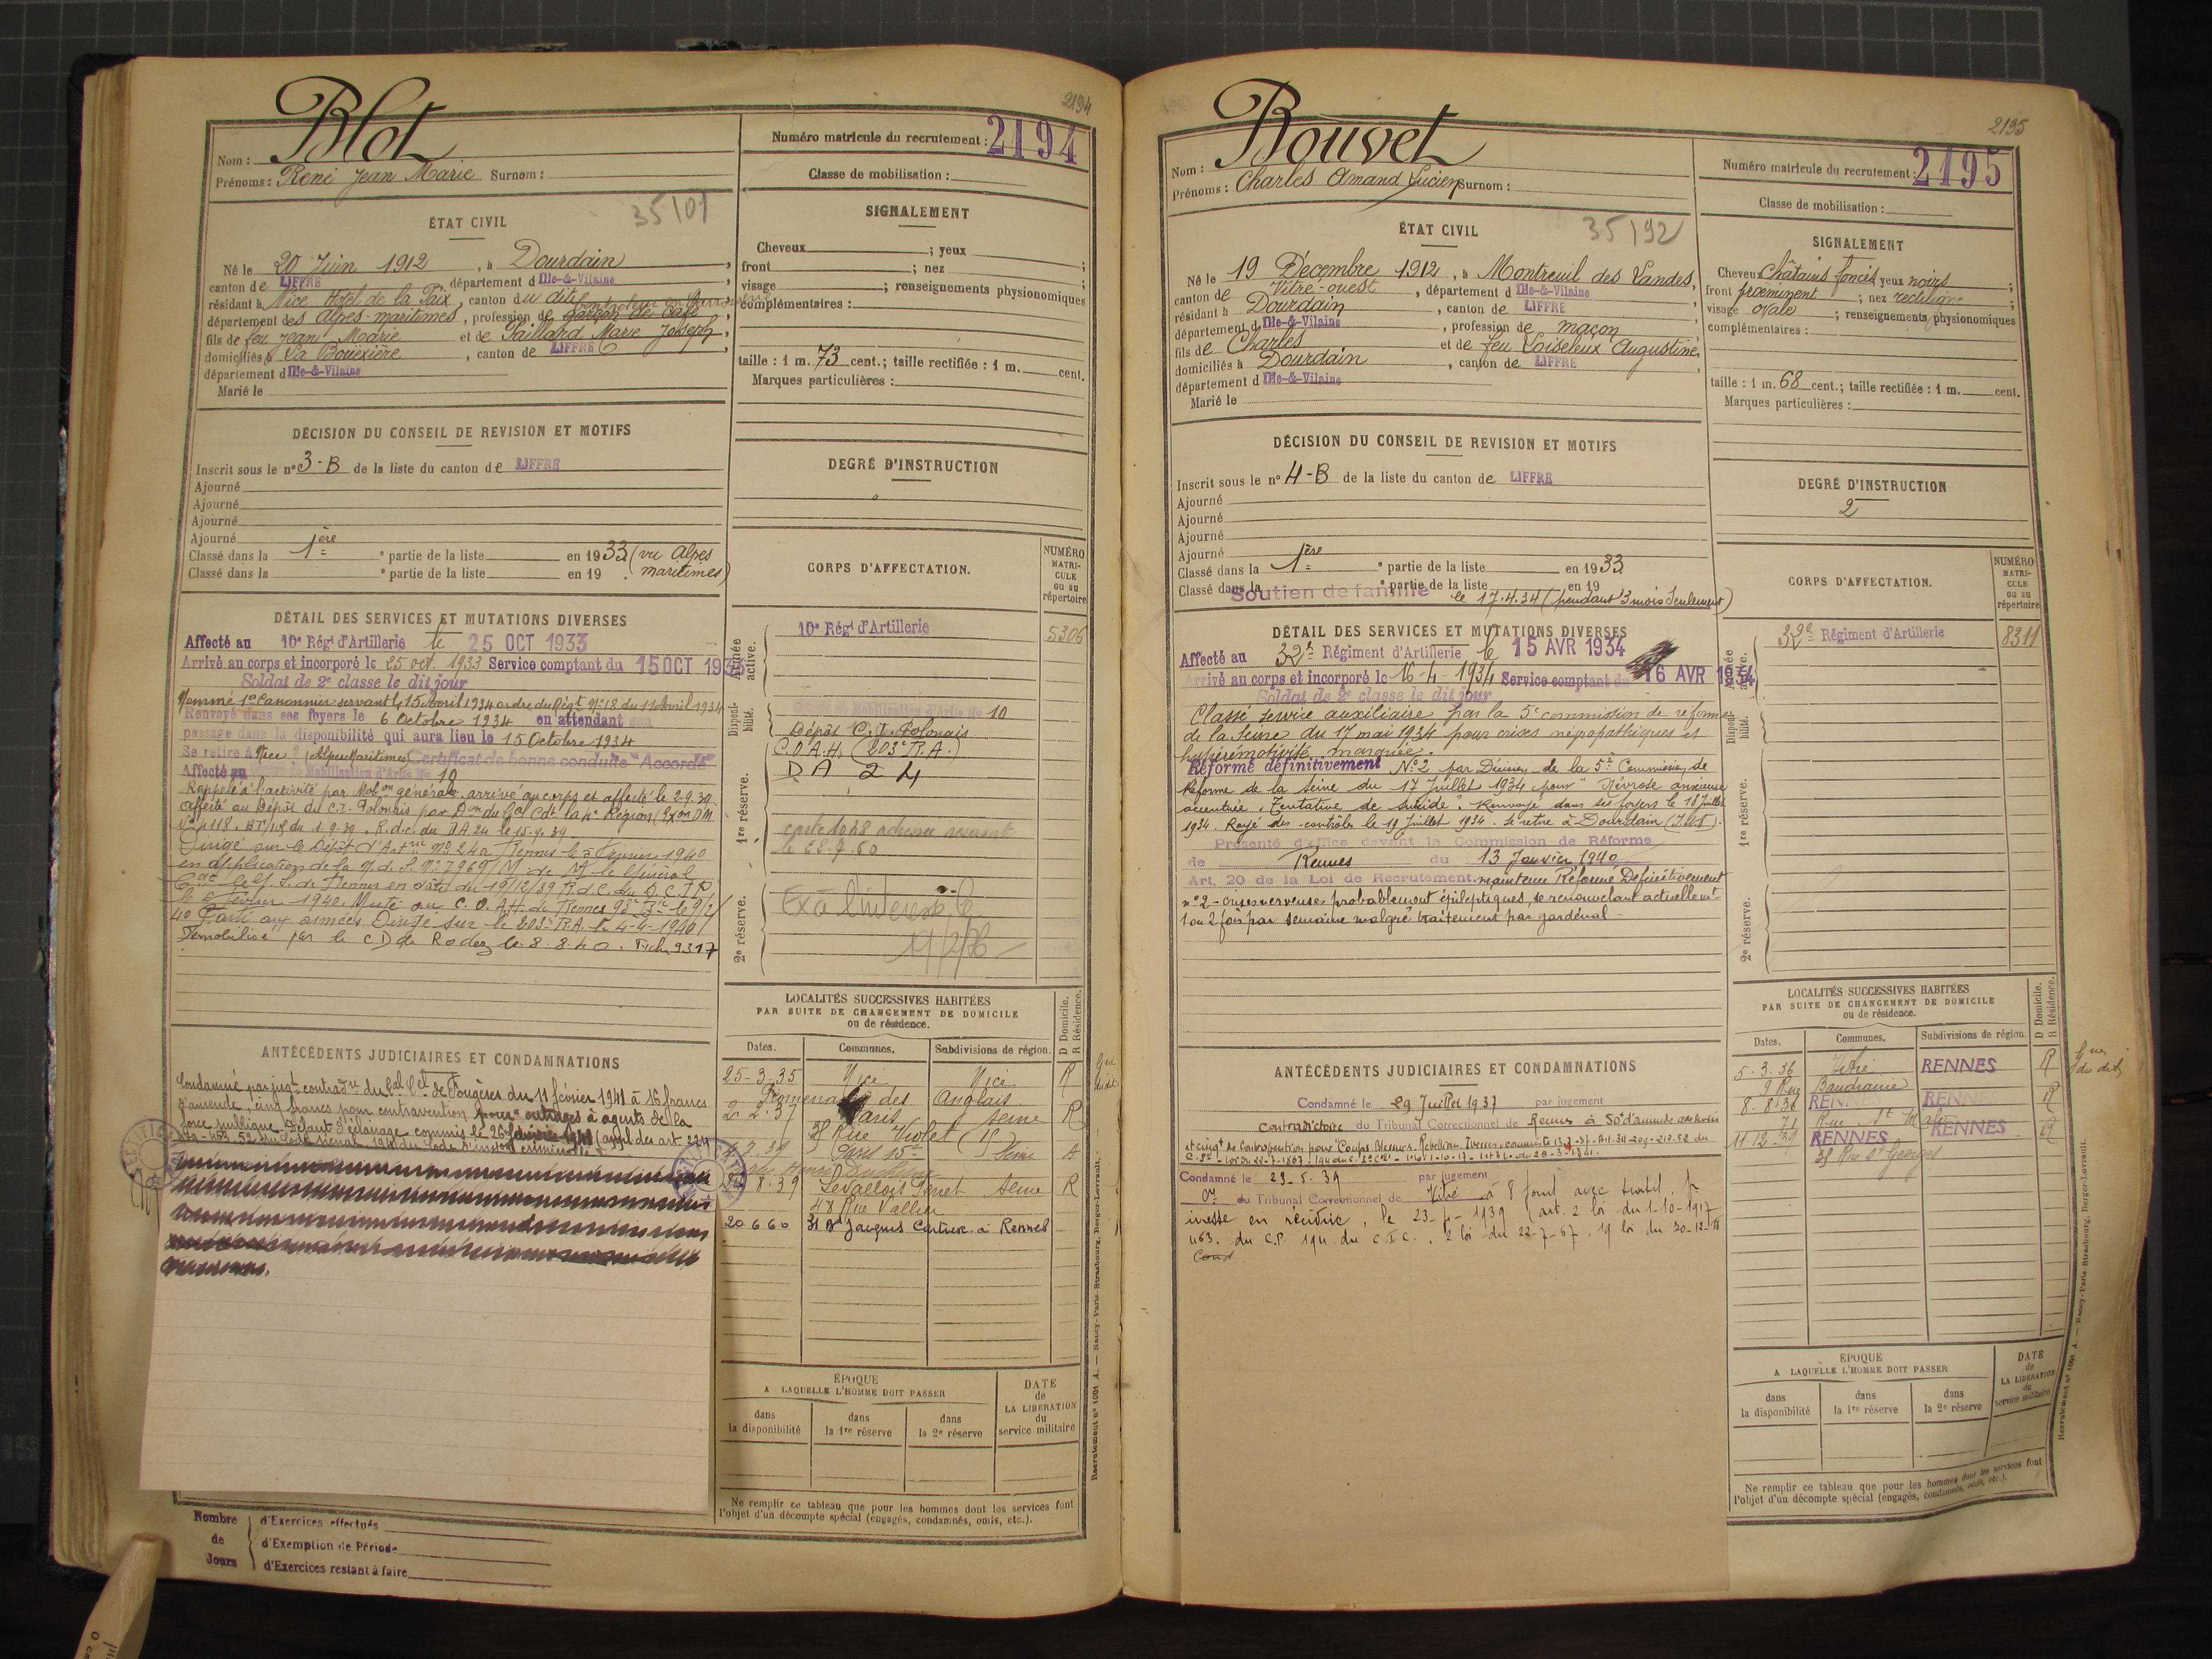 2194
Blot
Nom :
Prénoms : René Jean Marie Surnom :
Numéro matricule du recrutement : 2194
Classe de mobilisation :
35/01
ÉTAT CIVIL
Né le 20 Juin 1912, à Dourdain,
canton de LIFFRE, département d Ille-&-Vilaine
résidant à Nice Hôtel de la Paix, canton du dit
département des Alpes-maritimes, profession de garçon de café,
fils de feu Jean Marie et de Taillard Marie Joseph,
domiciliés à La Bouëxière, canton de LIFFRE,
département d Ille-&-Vilaine
Marié le
SIGNALEMENT
Cheveux ; yeux ;
front ; nez ;
visage ; renseignements physionomiques
complémentaires :
taille : 1 m. 73 cent.; taille rectifiée : 1 m. cent.
Marques particulières :
DÉCISION DU CONSEIL DE REVISION ET MOTIFS
Inscrit sous le n° 3-B de la liste du canton de LIFFRE
Ajourné
Ajourné
Ajourné
Ajourné
Classé dans la 1ère partie de la liste en 1933 (vu Alpes
Classé dans la partie de la liste en 19 . maritimes)
DEGRÉ D'INSTRUCTION
DÉTAIL DES SERVICES ET MUTATIONS DIVERSES
Affecté au 10e Régt d'Artillerie le 25 OCT 1933
Arrivé au corps et incorporé le 25 oct. 1933 Service comptant du 15 OCT 1933
Soldat de 2e classe le dit jour
Nommé 1e Canonnier servant le 15 Avril 1934 ordre du Régt N°18 du 11 Avril 1934
Renvoyé dans ses foyers le 6 Octobre 1934 en attendant son
passage dans la disponibilité qui aura lieu le 15 Octobre 1934
Se retire à Nice (Alpes Maritimes) Certificat de bonne conduite "Accordé"
Affecté au Centre de Mobilisation d'Artie No 10
Rappelé à l'activité par Mobon générale arrivé au corps et affecté le 2-9-39
affecté au Dépôt du C.I. Polonais par Don du Gal Cdt la 4e Région
N° 4118 du 1.9.39. R.d.c. du DA 24 le 15-9-39
Dirigé sur le Dépôt d'Artrie N° 24 à Rennes le 5 Février 1940
en application de la N. de S. N° 7969/M de M le Général
de Rennes en date du 19/12/39 R.d.c. du D.C.I.P.
le 6 Février 1940. Muté au C.O.A.H. de Rennes 98e Bie le 9/2/
40 Parti aux armées Dirigé sur le 203e R.A. le 4-4-1940
Démobilisé par le CD de Rodez le 8.8.40. Fiche 3317
CORPS D'AFFECTATION.
NUMÉRO MATRI-CULE ou au répertoire
Armée active.
10e Régt d'Artillerie 5306
Disponi-bilité.
Centre de Mobilisation d'Artie No 10
Dépôt C.I. Polonais
C.O.A.H. (203e R.A.)
1re réserve.
DA 24
2e réserve.
LOCALITÉS SUCCESSIVES HABITÉES
PAR SUITE DE CHANGEMENT DE DOMICILE
ou de résidence.
Dates. Communes. Subdivisions de région. D Domicile. R Résidence.
25-3-35 Nice Nice R
Promenade des Anglais
2.2.37 Paris Seine R
38 Rue Violet (15
Paris 15e Seine
8.39 Levallois Perret Seine R
48 Rue Vallier
20 6 60 31 Bd Jacques Cartier à Rennes
ANTÉCÉDENTS JUDICIAIRES ET CONDAMNATIONS
Condamné par jugt contradre du Bal Cel de Fougères du 11 février 1941 à 16 francs
d'amende, cinq francs pour contravention pour outrages à agents de la
force publique Défaut d'éclairage commis le 26
ÉPOQUE
A LAQUELLE L'HOMME DOIT PASSER
dans la disponibilité
dans la 1re réserve
dans la 2e réserve
DATE de LA LIBERATION du service militaire
Ne remplir ce tableau que pour les hommes dont les services font
l'objet d'un décompte spécial (engagés, condamnés, omis, etc.).
Nombre de Jours
d'Exercices effectués
d'Exemption de Période
d'Exercices restant à faire
Recrutement n° 1001 A. — Nancy-Paris-Strasbourg, Berger-Levrault.
2195
Bouvet
Nom :
Prénoms : Charles Amand Lucien Surnom :
Numéro matricule du recrutement : 2195
Classe de mobilisation :
35/92
ÉTAT CIVIL
Né le 19 Décembre 1912, à Montreuil des Landes,
canton de Vitré-ouest, département d Ille-&-Vilaine
résidant à Dourdain, canton de LIFFRE
département d Ille-&-Vilaine, profession de maçon
fils de Charles et de feu Loiseleux Augustine,
domiciliés à Dourdain, canton de LIFFRE
département d Ille-&-Vilaine
Marié le
SIGNALEMENT
Cheveux châtains foncés yeux noirs ;
front proéminent ; nez rectiligne ;
visage ovale ; renseignements physionomiques
complémentaires :
taille : 1 m. 68 cent.; taille rectifiée : 1 m. cent.
Marques particulières :
DÉCISION DU CONSEIL DE REVISION ET MOTIFS
Inscrit sous le n° 4-B de la liste du canton de LIFFRE
Ajourné
Ajourné
Ajourné
Ajourné
Classé dans la 1ère partie de la liste en 1933
Classé dans la partie de la liste en 19
Soutien de famille le 17.4.34 (pendant 3 mois seulement)
DEGRÉ D'INSTRUCTION
2
DÉTAIL DES SERVICES ET MUTATIONS DIVERSES
Affecté au 32e Régiment d'Artillerie le 15 AVR 1934
Arrivé au corps et incorporé le 16-4-1934 Service comptant du 16 AVR 1934
Soldat de 2e classe le dit jour
Classé service auxiliaire par la 5e commission de réforme
de la Seine du 17 mai 1934 pour crises névropathiques et
hyperémotivité marquée.
Réformé définitivement N°2 par Décision de la 5e Commission de
Réforme de la Seine du 17 Juillet 1934 pour "Névrose anxieuse
accentuée. Tentative de suicide". Renvoyé dans ses foyers le 18 Juillet
1934. Rayé des contrôles le 19 Juillet 1934. Se retire à Dourdain (I&V).
Présenté d'office devant la Commission de Réforme
de Rennes du 13 Janvier 1940
Art. 20 de la Loi de Recrutement. maintenu Réformé Définitivement
n°2 - crises nerveuses probablement épileptiques se renouvelant actuellemt
1 ou 2 fois par semaine malgré traitement par gardénal -
CORPS D'AFFECTATION.
NUMÉRO MATRI-CULE ou au répertoire
Armée active.
32e Régiment d'Artillerie 8311
Disponi-bilité.
1re réserve.
2e réserve.
LOCALITÉS SUCCESSIVES HABITÉES
PAR SUITE DE CHANGEMENT DE DOMICILE
ou de résidence.
Dates. Communes. Subdivisions de région. D Domicile. R Résidence.
5.3.36 Vitré RENNES R
9 Rue Baudrairie
8.8.36 RENNES RENNES R
71 Rue St Malo
11 12 39 RENNES RENNES R
38 Rue St Georges
ANTÉCÉDENTS JUDICIAIRES ET CONDAMNATIONS
Condamné le 29 Juillet 1937 par jugement
contradictoire du Tribunal Correctionnel de Rennes à 50f d'amende
Condamné le 23-5-39 par jugement
du Tribunal Correctionnel de Vitré à 8 jours avec sursis. pr
ivresse en récidive, le 23- -1939 (art. 2 loi du 1-10-1917
463. du C.P. 194 du C.I.C. 2 loi du 22-7-67. 19 loi du 30-12-
Cond
ÉPOQUE
A LAQUELLE L'HOMME DOIT PASSER
dans la disponibilité
dans la 1re réserve
dans la 2e réserve
DATE de LA LIBERATION du service militaire
Ne remplir ce tableau que pour les hommes dont les services font
l'objet d'un décompte spécial (engagés, condamnés, omis, etc.).
Recrutement n° 1001 A. — Nancy-Paris-Strasbourg, Berger-Levrault.